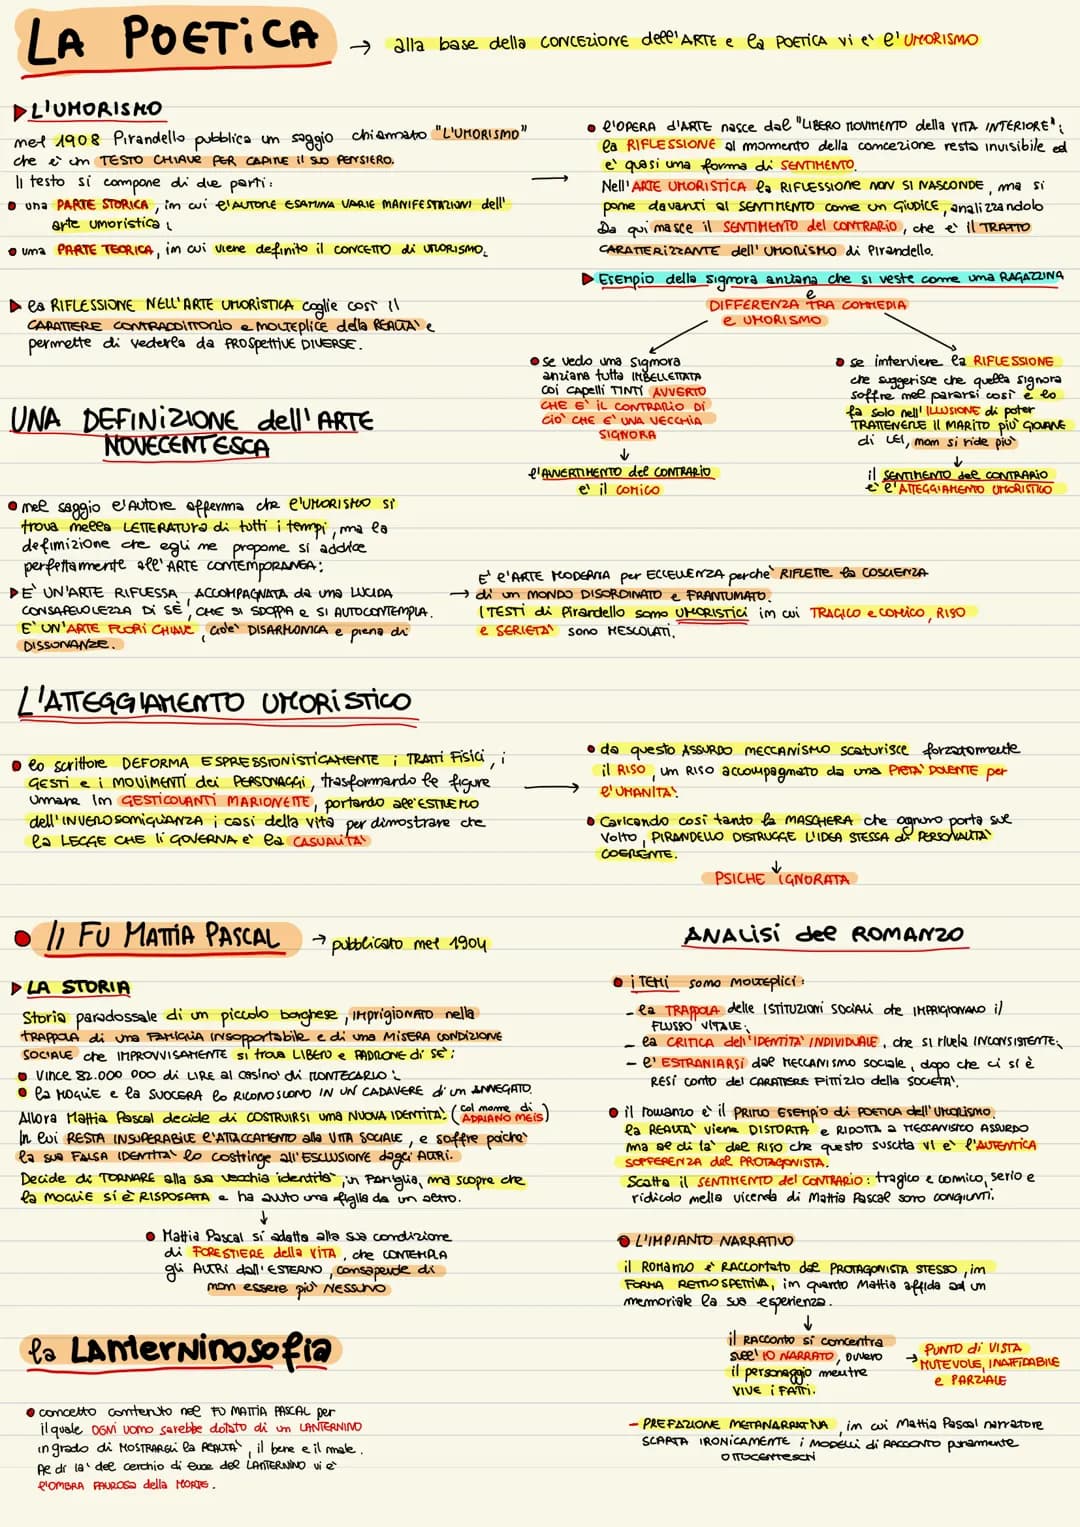 LA POETICA → alla base della CONCEZIONE dell'ARTE e la POETICA vi è l'UMORISMO
L'UMORISMO
nel 1908 Pirandello pubblica un saggio chiamato "L'UMORISMO"
che è un TESTO CHIAVE PER CAPIRE il SUO PENSIERO.
Il testo si compone di due parti:
una PARTE STORICA, in cui l'AUTORE ESAMINA VARIE MANIFESTAZIONI dell'
arte umoristica;
una PARTE TEORICA, in cui viene definito il CONCETTO di UMORISMO.
→
l'OPERA d'ARTE nasce dal "LIBERO MOVIMENTO della VITA INTERIORE";
la RIFLESSIONE al momento della concezione resta invisibile ed
è quasi una forma di SENTIMENTO.
Nell'ARTE UMORISTICA la RIFLESSIONE NON SI NASCONDE, ma si
pone davanti al SENTIMENTO come un GIUDICE, analizzandolo
Da qui nasce il SENTIMENTO del CONTRARIO, che è il TRATTO
CARATTERIZZANTE dell'UMORISMO di Pirandello.
la RIFLESSIONE NELL'ARTE UMORISTICA coglie così il
CARATTERE CONTRADDITTORIO e MOLTEPLICE della REALTÀ e
permette di vederla da PROSPETTIVE DIVERSE.
ESEMPIO della signora anziana che si veste come una RAGAZZINA
e
DIFFERENZA TRA COMMEDIA
e UMORISMO
se vedo una signora
anziana tutta IMBELLETTATA
coi CAPELLI TINTI AVVERTO
CHE È IL CONTRARIO DI
CIÒ CHE È UNA VECCHIA
SIGNORA
↓
l'AVVERTIMENTO del CONTRARIO
è il COMICO
se interviene la RIFLESSIONE
che suggerisce che quella signora
soffre nel pararsi così e lo
fa solo nell'ILLUSIONE di poter
TRATTENERE IL MARITO più GIOVANE
di LEI, non si ride più
↓
il SENTIMENTO del CONTRARIO
è l'ATTEGGIAMENTO UMORISTICO
UNA DEFINIZIONE dell'ARTE
NOVECENTESCA
nel saggio l'AUTORE afferma che l'UMORISMO si
trova nella LETTERATURA di tutti i tempi, ma la
definizione che egli ne propone si addice
perfettamente all'ARTE CONTEMPORANEA:
È UN'ARTE RIFLESSA, ACCOMPAGNATA da una LUCIDA
CONSAPEVOLEZZA DI SÉ, CHE SI SDOPPIA e SI AUTOCONTEMPLA.
È UN'ARTE FUORI CHIAVE, cioè DISARMONICA e piena di
DISSONANZE.
→
È l'ARTE MODERNA per ECCELLENZA perché RIFLETTE la COSCIENZA
di un MONDO DISORDINATO e FRANTUMATO.
I TESTI di Pirandello sono UMORISTICI in cui TRAGICO e COMICO, RISO
e SERIETÀ sono MESCOLATI.
L'ATTEGGIAMENTO UMORISTICO
lo scrittore DEFORMA ESPRESSIONISTICAMENTE i TRATTI FISICI, i
GESTI e i MOVIMENTI dei PERSONAGGI, trasformando le figure
umane in GESTICOLANTI MARIONETTE, portando all'ESTREMO
dell'INVEROSOMIGLIANZA i casi della vita per dimostrare che
la LEGGE CHE li GOVERNA è la CASUALITÀ
→
da questo ASSURDO MECCANISMO scaturisce forzatamente
il RISO, un RISO accompagnato da una PIETÀ DOLENTE per
l'UMANITÀ.
Caricando così tanto la MASCHERA che ognuno porta sul
VOLTO, PIRANDELLO DISTRUGGE L'IDEA STESSA di PERSONALITÀ
COERENTE.
↓
PSICHE IGNORATA
Il FU MATTIA PASCAL → pubblicato nel 1904
LA STORIA
Storia paradossale di un piccolo borghese, IMPRIGIONATO nella
TRAPPOLA di una FAMIGLIA INSOPPORTABILE e di una MISERA CONDIZIONE
SOCIALE che IMPROVVISAMENTE si trova LIBERO e PADRONE di SÉ:
VINCE 82.000 000 di LIRE al casinò di MONTECARLO;
la MOGLIE e la SUOCERA lo RICONOSCONO IN UN CADAVERE d'un ANNEGATO.
Allora Mattia Pascal decide di COSTRUIRSI una NUOVA IDENTITÀ. (col nome di ADRIANO MEIS)
In lui RESTA INSUPERABILE l'ATTACCAMENTO alla VITA SOCIALE, e soffre poiché
la sua FALSA IDENTITÀ lo costringe all'ESCLUSIONE dagli ALTRI.
Decide di TORNARE alla sua vecchia identità, in famiglia, ma scopre che
la MOGLIE SI È RISPOSATA e ha avuto una figlia da un altro.
↓
Mattia Pascal si adatta alla sua condizione
di FORESTIERE della VITA, che CONTEMPLA
gli ALTRI dall'ESTERNO, consapevole di
non essere più NESSUNO
ANALISI del ROMANZO
i TEMI sono molteplici:
- la TRAPPOLA delle ISTITUZIONI SOCIALI che IMPRIGIONANO il
FLUSSO VITALE;
- la CRITICA dell'IDENTITÀ INDIVIDUALE, che si rivela INCONSISTENTE;
- l'ESTRANIARSI dal MECCANISMO sociale, dopo che ci si è
RESI conto del CARATTERE FITTIZIO della SOCIETÀ.
il romanzo è il PRIMO ESEMPIO di POETICA dell'UMORISMO.
la REALTÀ viene DISTORTA e RIDOTTA a MECCANISMO ASSURDO
ma al di là del RISO che questo suscita vi è l'AUTENTICA
SOFFERENZA del PROTAGONISTA.
Scatta il SENTIMENTO del CONTRARIO: tragico e comico, serio e
ridicolo nella vicenda di Mattia Pascal sono CONGIUNTI.
L'IMPIANTO NARRATIVO
il ROMANZO è RACCONTATO dal PROTAGONISTA STESSO, in
FORMA RETROSPETTIVA, in quanto Mattia affida ad un
memoriale la sua esperienza.
↓
il RACCONTO si concentra
sull'IO NARRATO, ovvero
il personaggio mentre
VIVE i FATTI.
→ PUNTO di VISTA
MUTEVOLE, INAFFIDABILE
e PARZIALE
- PREFAZIONE METANARRATIVA, in cui Mattia Pascal narratore
SCARTA IRONICAMENTE i MODELLI di RACCONTO puramente
OTTOCENTESCHI
la LANTERNINOSOFIA
concetto contenuto nel FU MATTIA PASCAL per
il quale OGNI UOMO sarebbe dotato di un LANTERNINO
in grado di MOSTRARGLI la REALTÀ, il bene e il male.
Al di là del cerchio di luce del LANTERNINO vi è
l'OMBRA PAUROSA della MORTE.